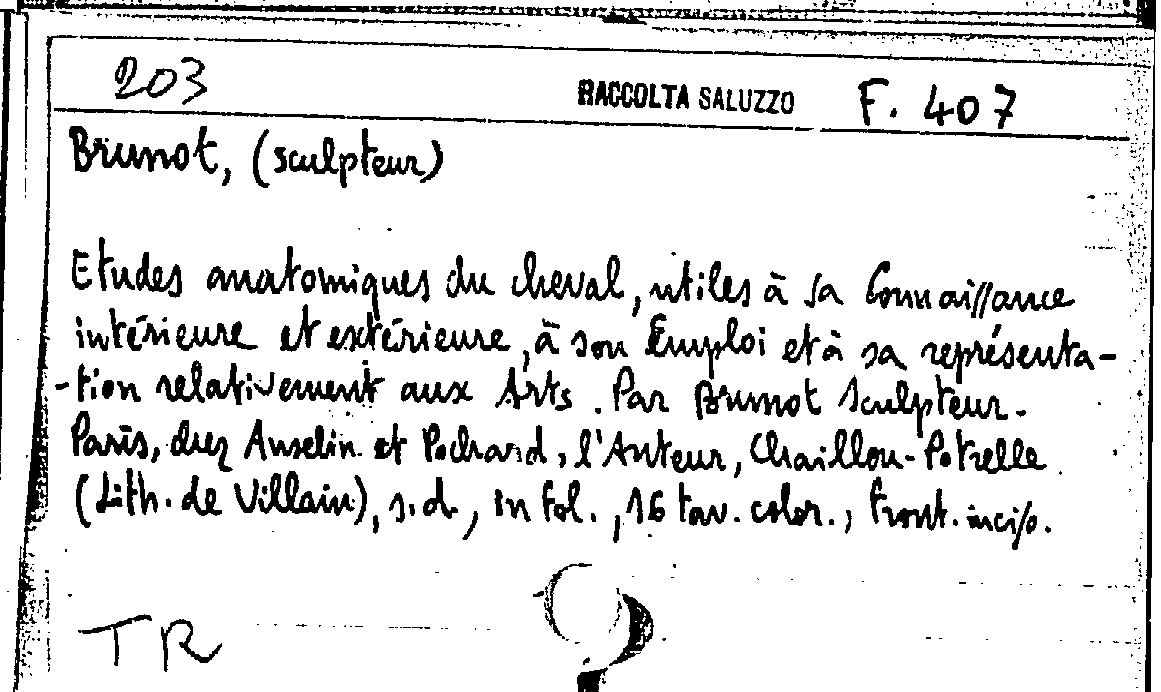 203 RACCOLTA SALUZZO F. 407
Brunot, (sculpteur)
Etudes anatomiques du cheval, utiles à sa Connaissance
intérieure et extérieure, à son Emploi et à sa représenta-
-tion relativement aux Arts. Par Brunot Sculpteur.
Paris, chez Anselin et Pochard, l'Auteur, Chaillou-Potrelle
(Lith. de Villain), s.d., in fol., 16 tav. color., front. incis.
TR